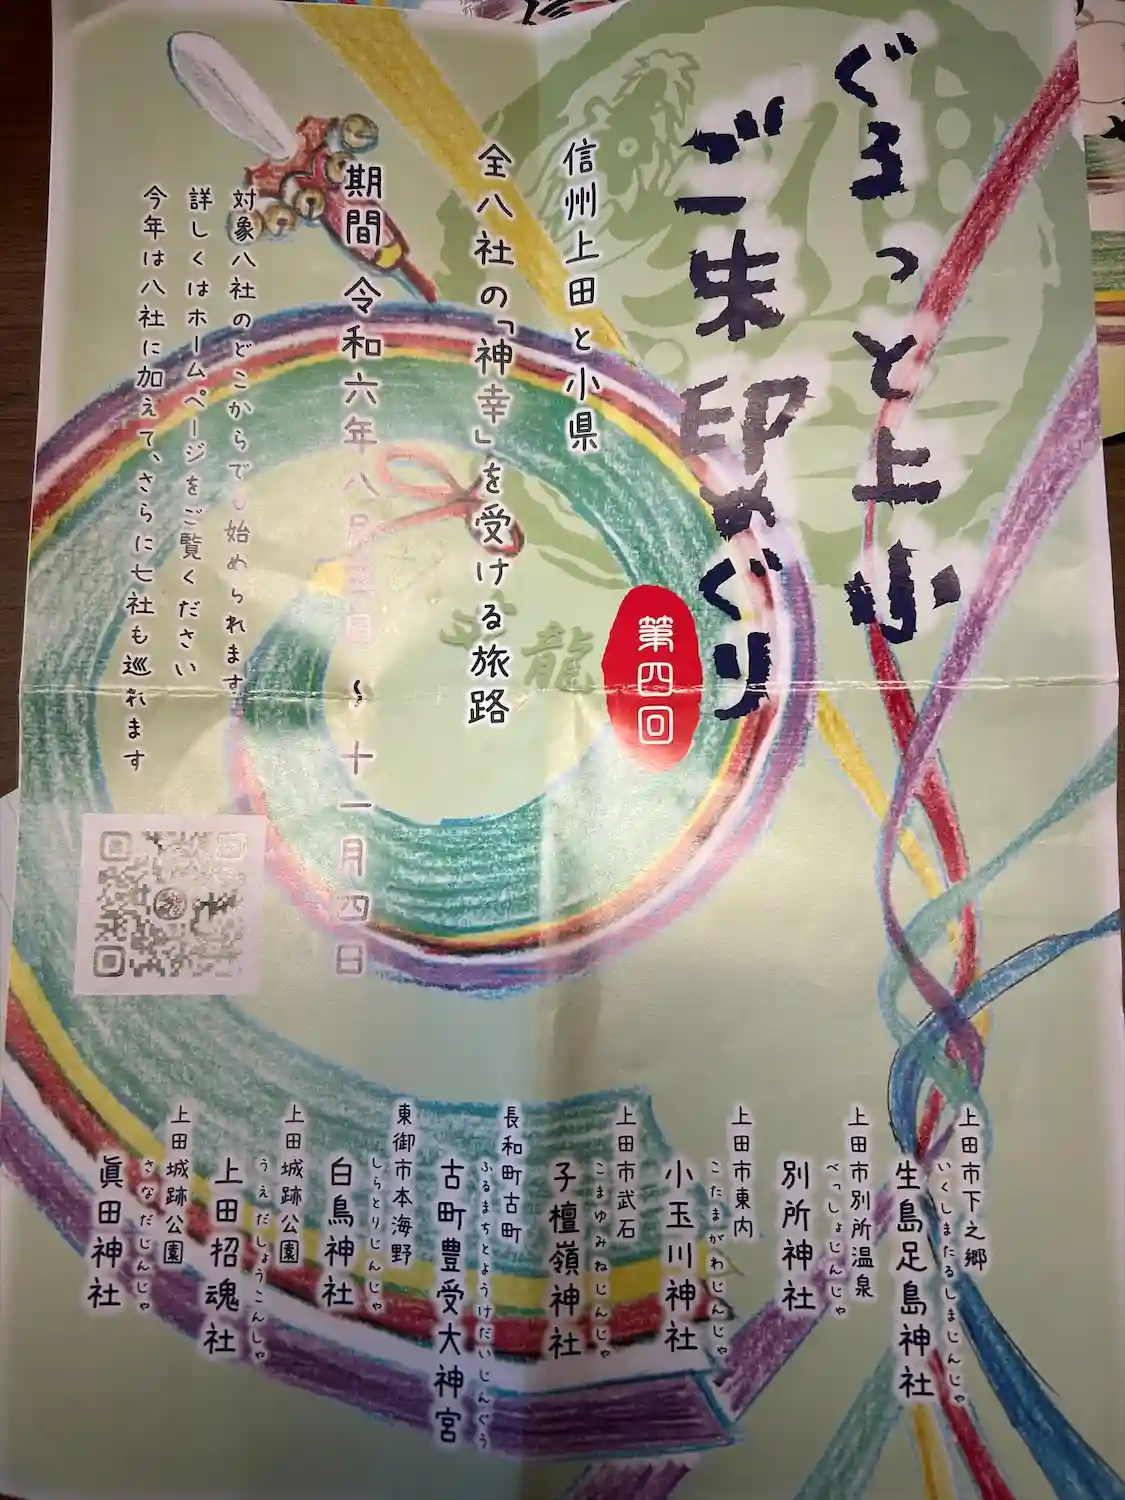 ぐるっと上小
ご朱印めぐり
第四回
信州上田と小県
全八社の「神幸」を受ける旅路
龍
期間 令和六年八月三日 〜 十一月四日
対象八社のどこからでも始められます
詳しくはホームページをご覧ください
今年は八社に加えて、さらに七社も巡れます
上田市下之郷
いくしまたるしまじんじゃ
生島足島神社
上田市別所温泉
べっしょじんじゃ
別所神社
上田市東内
こたまがわじんじゃ
小玉川神社
上田市武石
こまゆみねじんじゃ
子檀嶺神社
長和町古町
ふるまちとようけだいじんぐう
古町豊受大神宮
東御市本海野
しらとりじんじゃ
白鳥神社
上田城跡公園
うえだしょうこんしゃ
上田招魂社
上田城跡公園
さなだじんじゃ
眞田神社